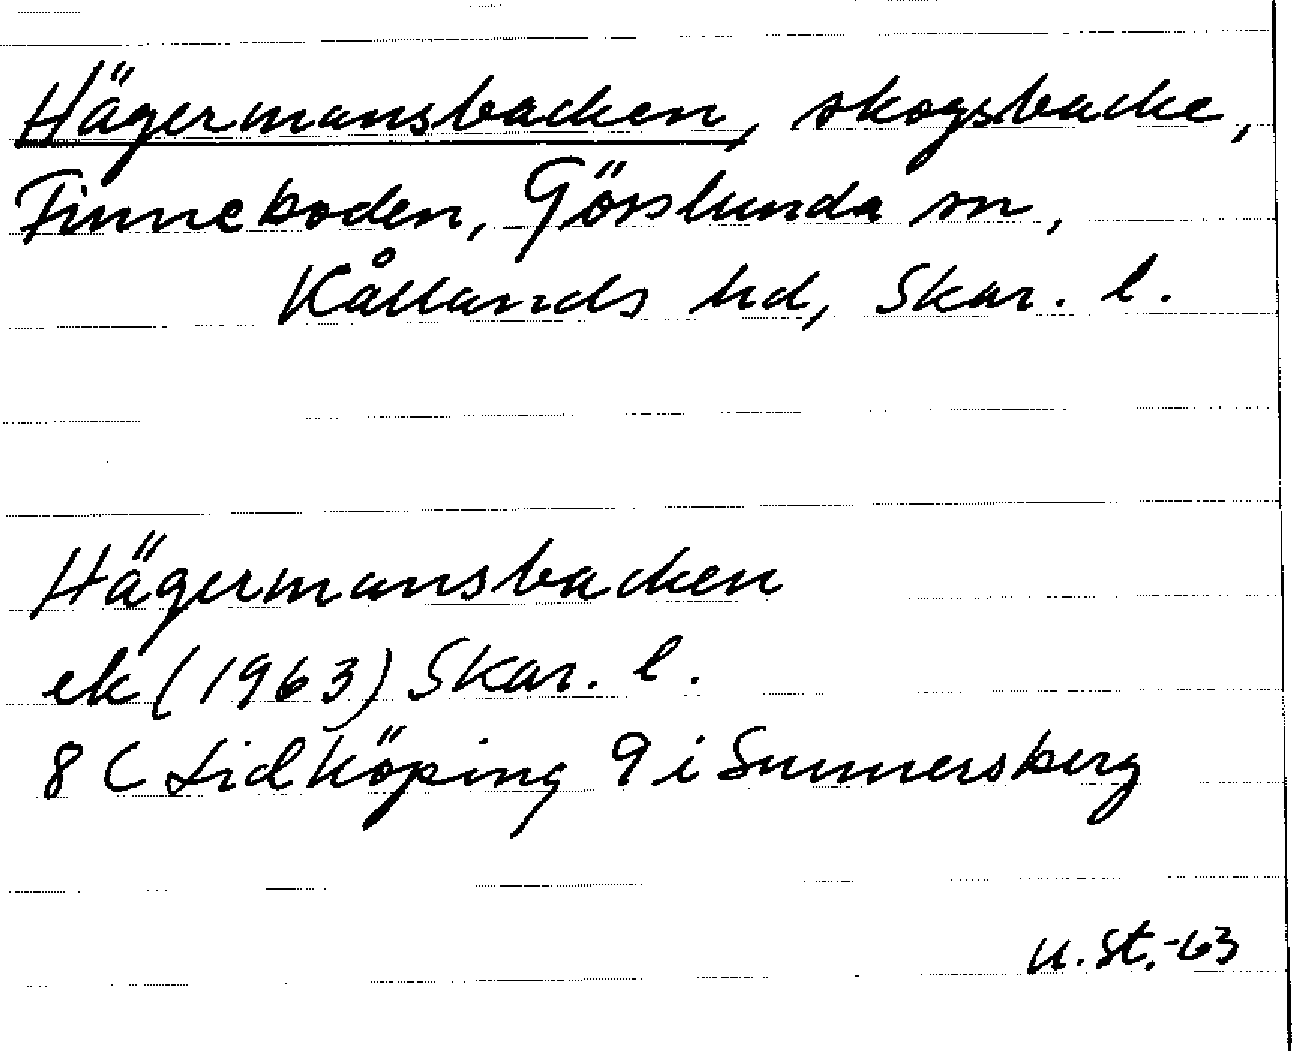 Hägermansbacken, skogsbacke,
Finneboden, Gösslunda sn,
Kållands hd, Skar. l.
Hägermansbacken
ek (1963) Skar. l.
8 C Lidköping 9 i Sunnersberg
u. St. -63